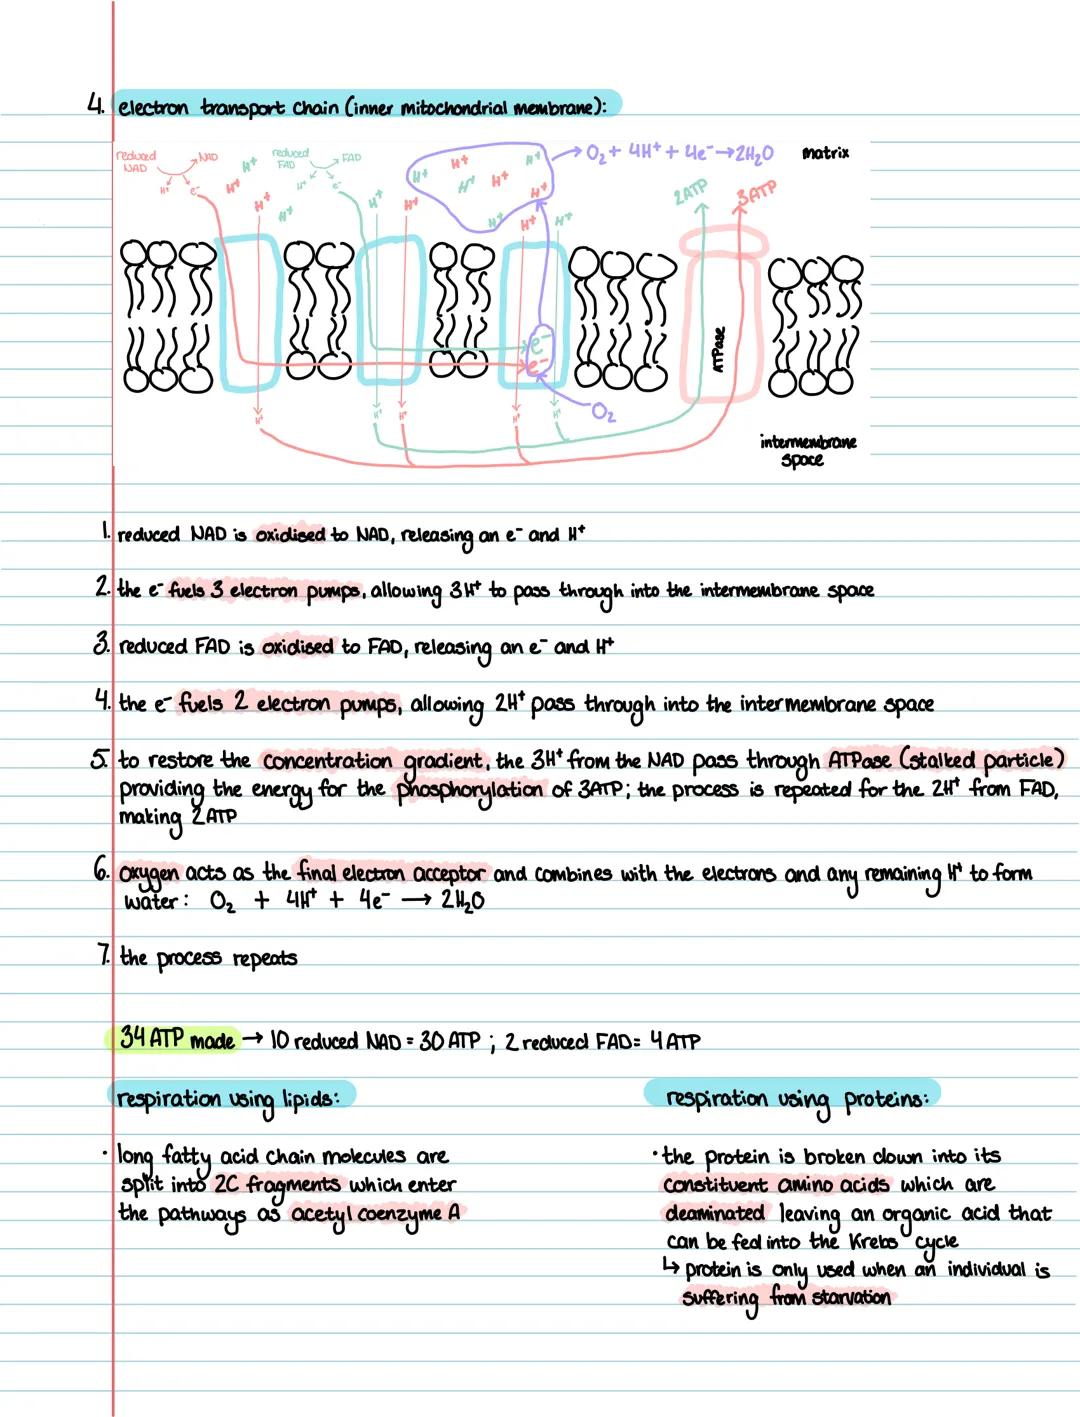 4. electron transport chain (inner mitochondrial membrane):
reduced NAD → NAD
H⁺ e⁻
H⁺ H⁺ H⁺ H⁺
reduced FAD → FAD
H⁺ e⁻
H⁺ H⁺
H⁺ H⁺ H⁺ H⁺ H⁺ H⁺ H⁺
H⁺ H⁺
→ O₂ + 4H⁺ + 4e⁻ → 2H₂O
matrix
2ATP 3ATP
e⁻
e⁻
ATPase
O₂
H⁺ H⁺ H⁺ H⁺ H⁺
intermembrane
space
1. reduced NAD is oxidised to NAD, releasing an e⁻ and H⁺
2. the e⁻ fuels 3 electron pumps, allowing 3H⁺ to pass through into the intermembrane space
3. reduced FAD is oxidised to FAD, releasing an e⁻ and H⁺
4. the e⁻ fuels 2 electron pumps, allowing 2H⁺ pass through into the intermembrane space
5. to restore the concentration gradient, the 3H⁺ from the NAD pass through ATPase (stalked particle)
providing the energy for the phosphorylation of 3ATP; the process is repeated for the 2H⁺ from FAD,
making 2ATP
6. oxygen acts as the final electron acceptor and combines with the electrons and any remaining H⁺ to form
water: O₂ + 4H⁺ + 4e⁻ → 2H₂O
7. the process repeats
34 ATP made → 10 reduced NAD = 30 ATP ; 2 reduced FAD = 4 ATP
respiration using lipids:
· long fatty acid chain molecules are
split into 2C fragments which enter
the pathways as acetyl coenzyme A
respiration using proteins:
· the protein is broken down into its
constituent amino acids which are
deaminated leaving an organic acid that
can be fed into the Krebs cycle
↳ protein is only used when an individual is
suffering from starvation